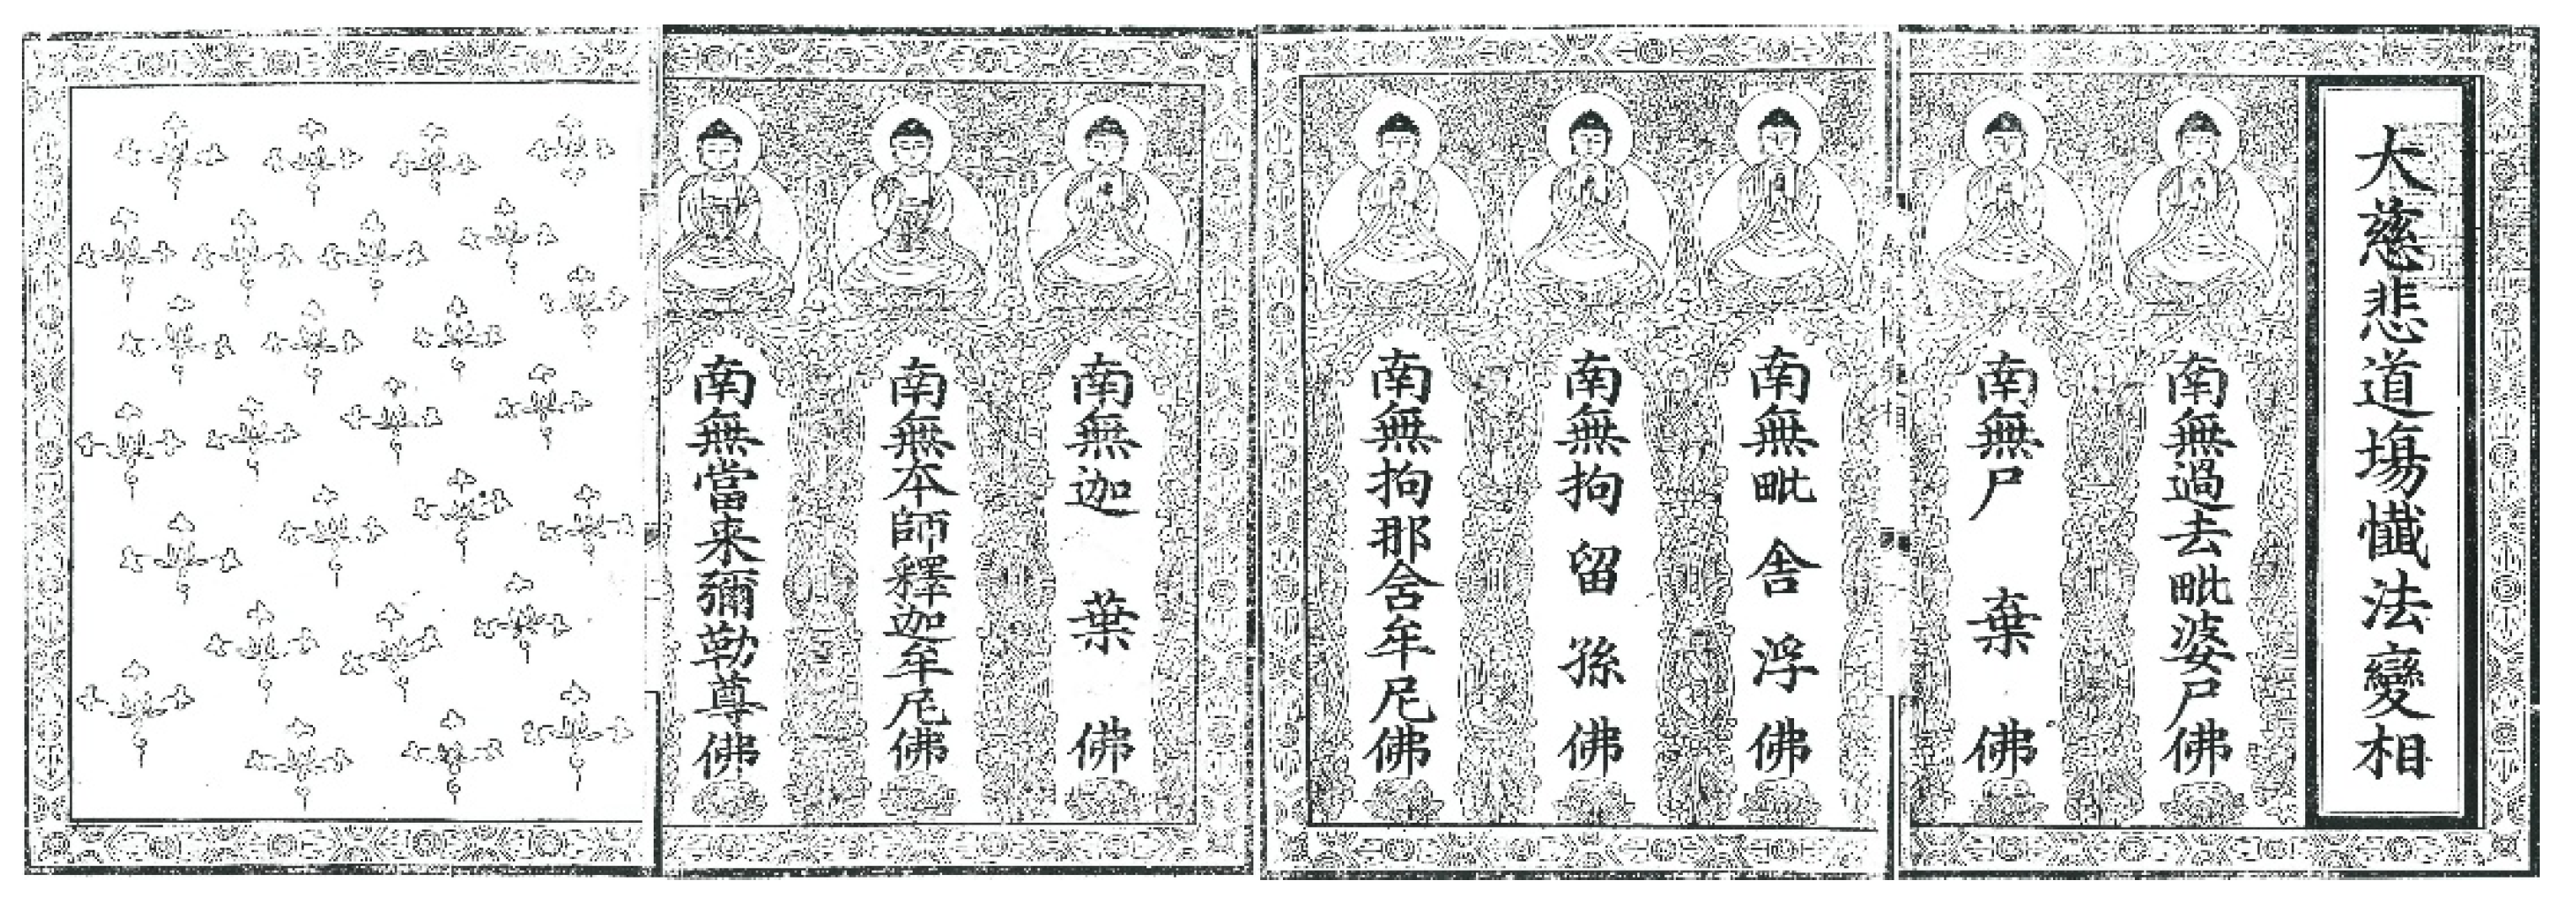 大慈悲道場懺法變相
南無過去毗婆尸佛
南無尸棄佛
南無毗舍浮佛
南無拘留孫佛
南無拘那舍牟尼佛
南無迦葉佛
南無本師釋迦牟尼佛
南無當来彌勒尊佛